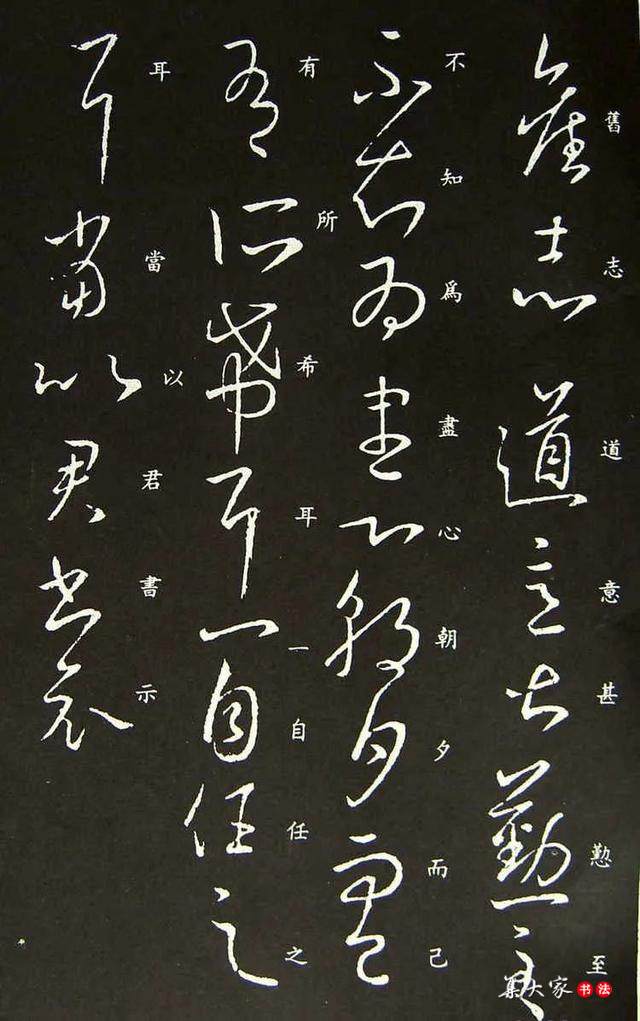 舊志道意甚懃至
不知爲盡心朝夕而己
有所希耳一自任之
耳當以君書示
集大家书法